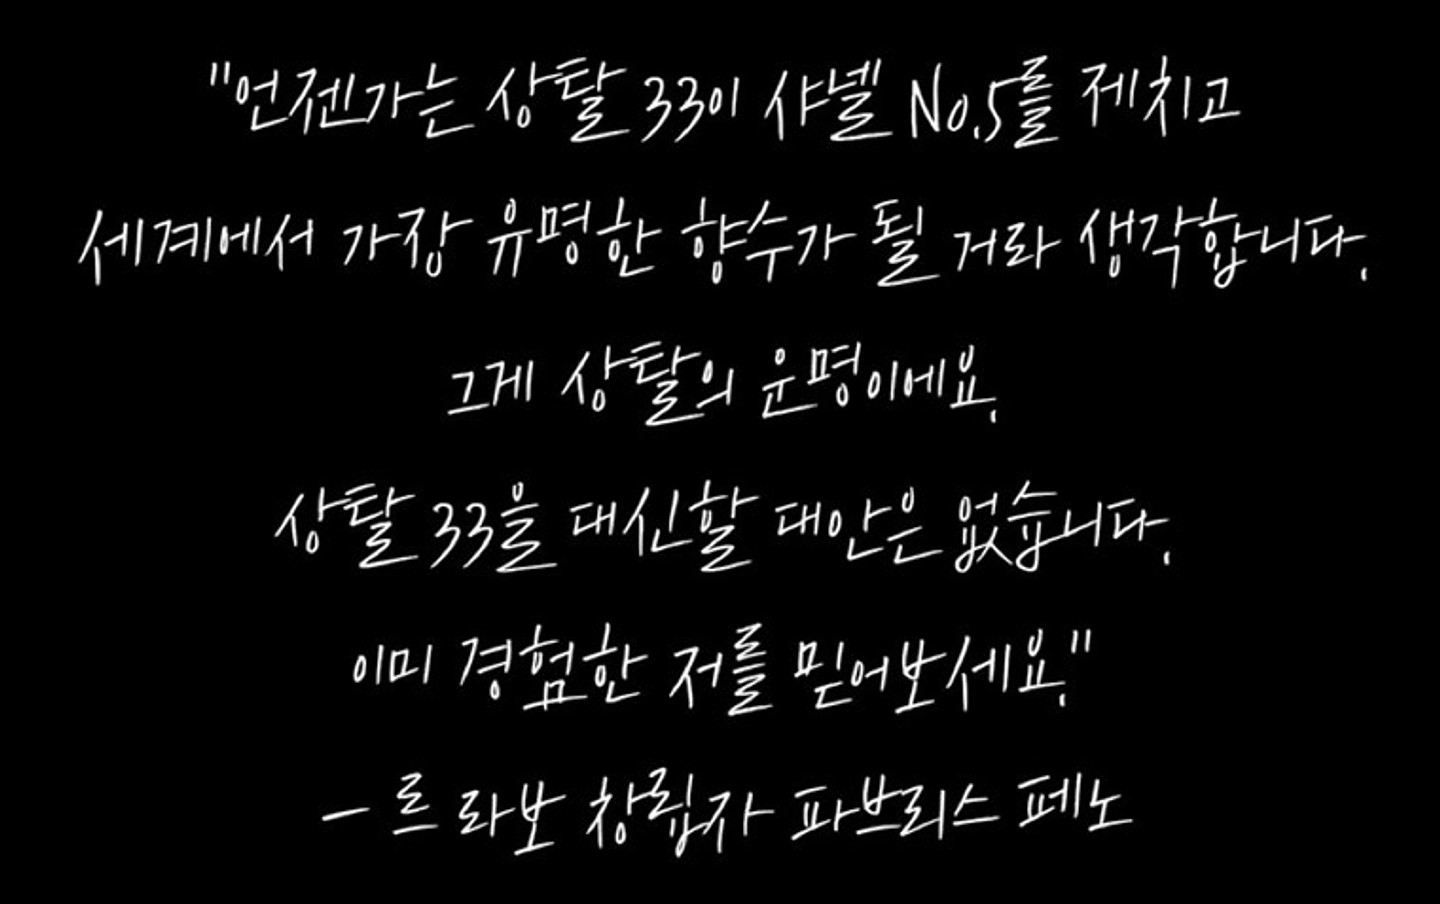 "언젠가는 상탈 33이 샤넬 No.5를 제치고
세계에서 가장 유명한 향수가 될 거라 생각합니다.
그게 상탈의 운명이에요.
상탈 33을 대신할 대안은 없습니다.
이미 경험한 저를 믿어보세요."
- 르 라보 창립자 파브리스 페노